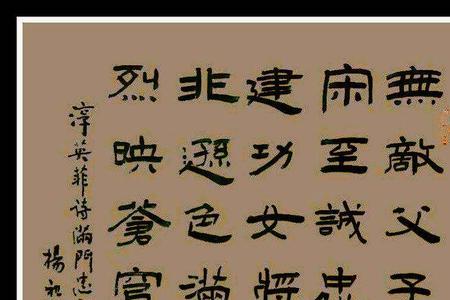 無敵父子
宋至誠忠
建功女將
非遜色滿
烈映蒼
英菲诗滿門忠
楊